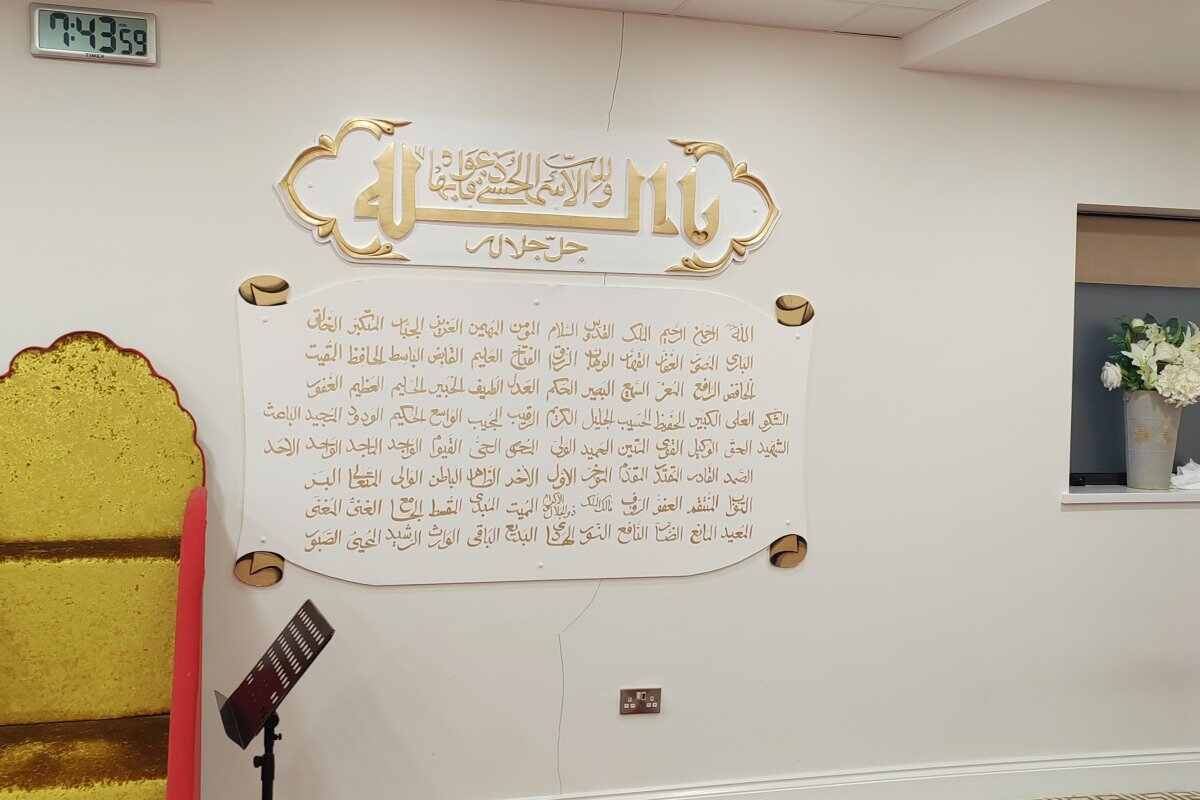 7:43 59
TIMEX
ولله الأسماء الحسنى فادعوه بها
يا الله
جل جلاله
الله الرحمن الرحيم الملك القدوس السلام المؤمن المهيمن العزيز الجبار المتكبر الخالق
البارئ المصور الغفار القهار الوهاب الرزاق الفتاح العليم القابض الباسط الحافظ المقيت
الخافض الرافع المعز السميع البصير الحكم العدل اللطيف الخبير الحليم العظيم الغفور
الشكور العلي الكبير الحفيظ الحسيب الجليل الكريم الرقيب المجيب الواسع الحكيم الودود المجيد الباعث
الشهيد الحق الوكيل القوي المتين الحميد الولي المحصي المحيي القيوم الواجد الماجد الواحد الاحد
الصمد القادر المقتدر المقدم المؤخر الاول الاخر الظاهر الباطن الوالي المتعالي البر
التواب المنتقم العفو الرؤف مالك الملك ذو الجلال والاكرام المميت المبدئ المقسط الجامع الغني المغني
المعيد المانع الضار النافع النور الهادي البديع الباقي الوارث الرشيد المحيي الصبور